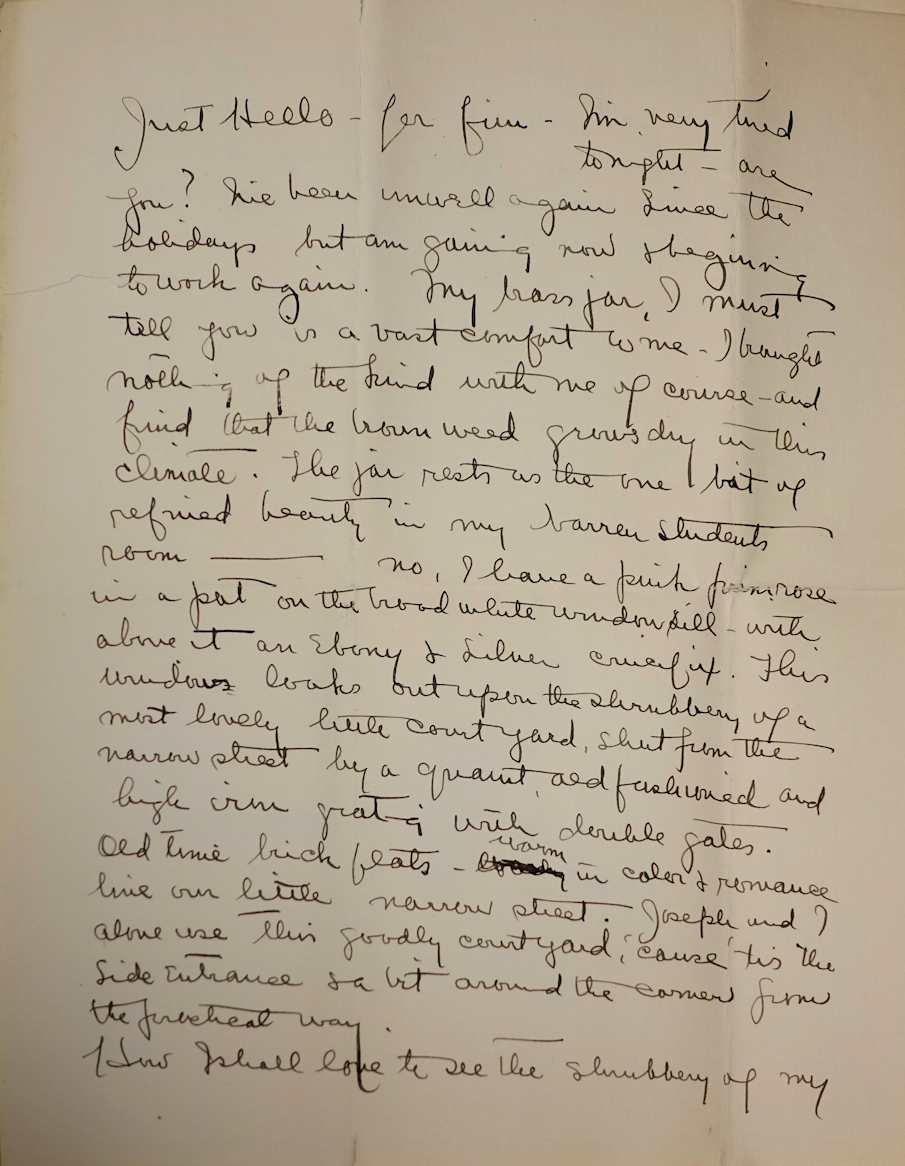 Just Hello - for fun - I'm very tired
tonight - are
you? I've been unwell again since the
holidays but am gaining now & beginning
to work again. My brass jar, I must
tell you is a vast comfort to me - I brought
nothing of the kind with me of course - and
find that the brown weed grows dry in this
climate. The jar rests as the one bit of
refined beauty in my barren students
room — no, I have a pink primrose
in a pot on the broad white window sill - with
above it an Ebony & Silver crucifix. This
window looks out upon the shrubbery of a
most lovely little court yard, shut from the
narrow street by a quaint, old fashioned and
high iron grating with double gates.
Old time brick flats - warm in color & romance
line our little narrow street. Joseph and I
alone use this goodly courtyard, 'cause 'tis the
Side Entrance & a bit around the corner from
the practical way.
How I shall love to see the shrubbery of my